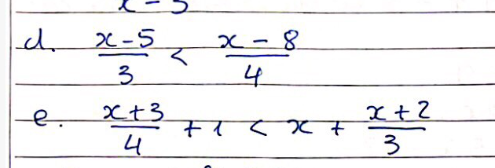 x - 5
d. (x-5)/3 < (x-8)/4
e. (x+3)/4 + 1 < x + (x+2)/3